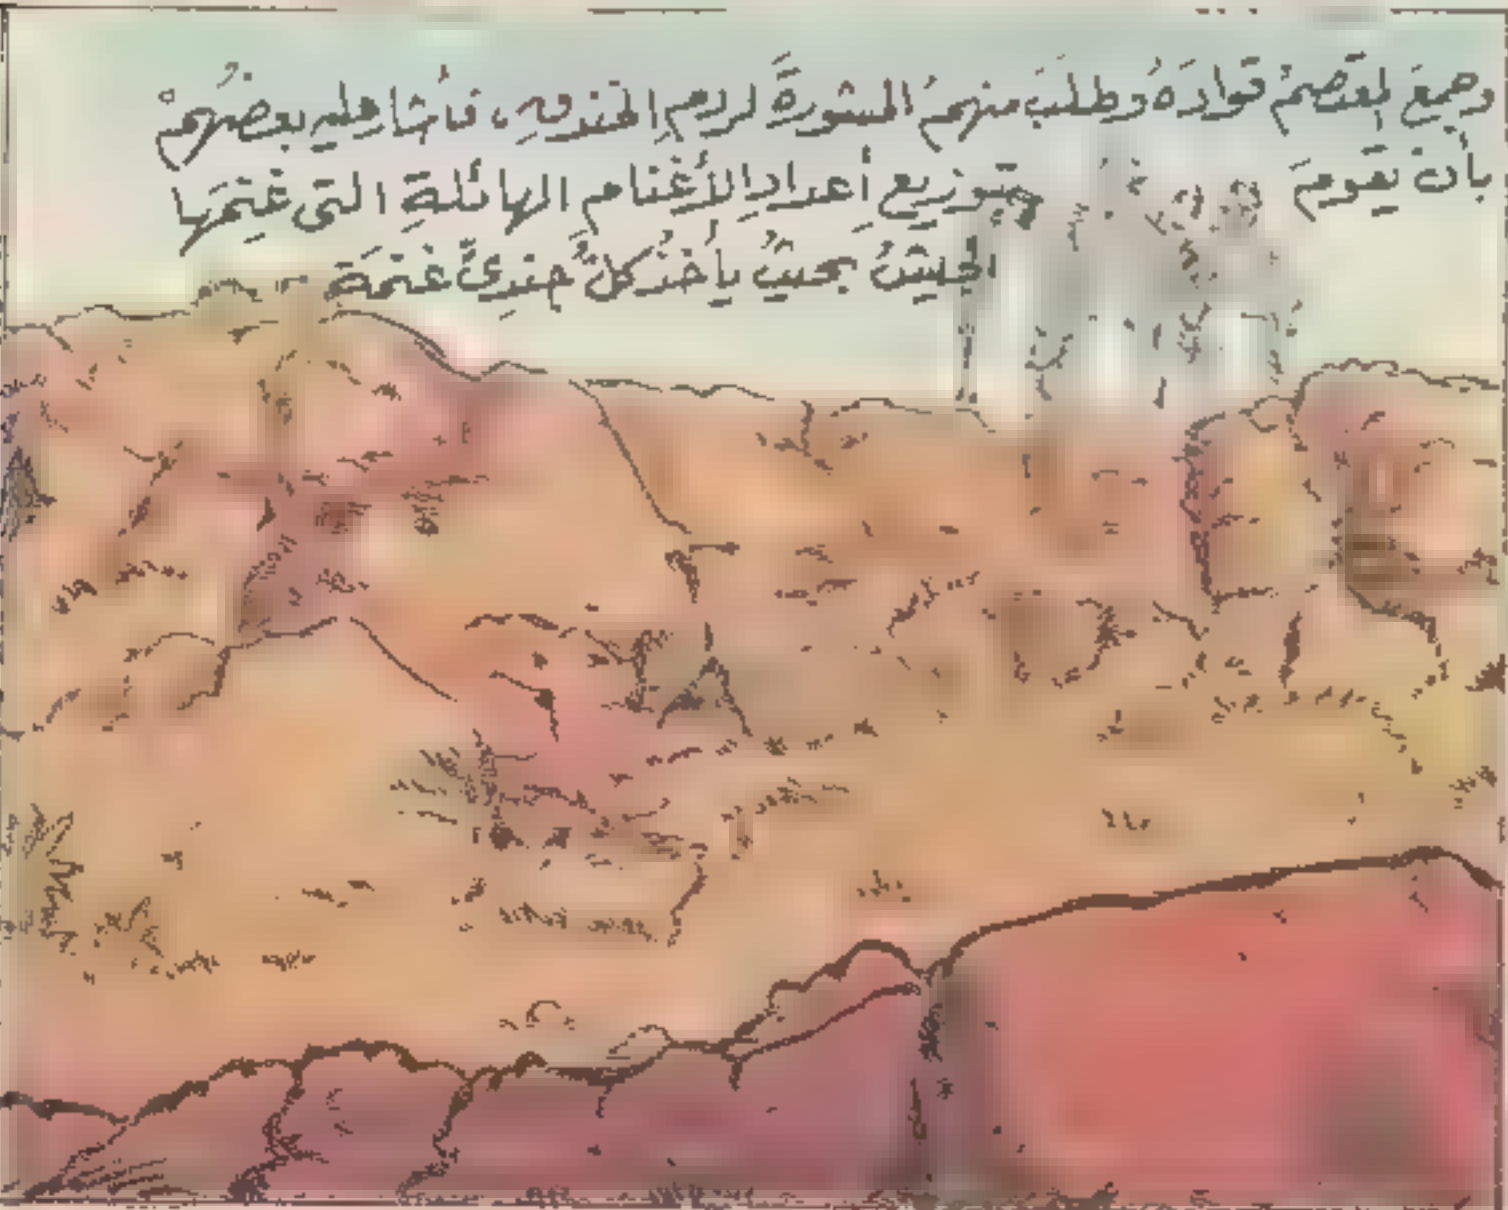 وجمعَ المعتصمُ قوادَهُ وطلبَ منهمُ المشورةَ لردمِ الخندقِ، فأشار عليه بعضُهمْ
بأن يقومَ بتوزيعِ أعدادِ الأغنامِ الهائلةِ التي غنِمَها
الجيشُ بحيثُ يأخذُ كلُّ جنديٍّ غنمَة